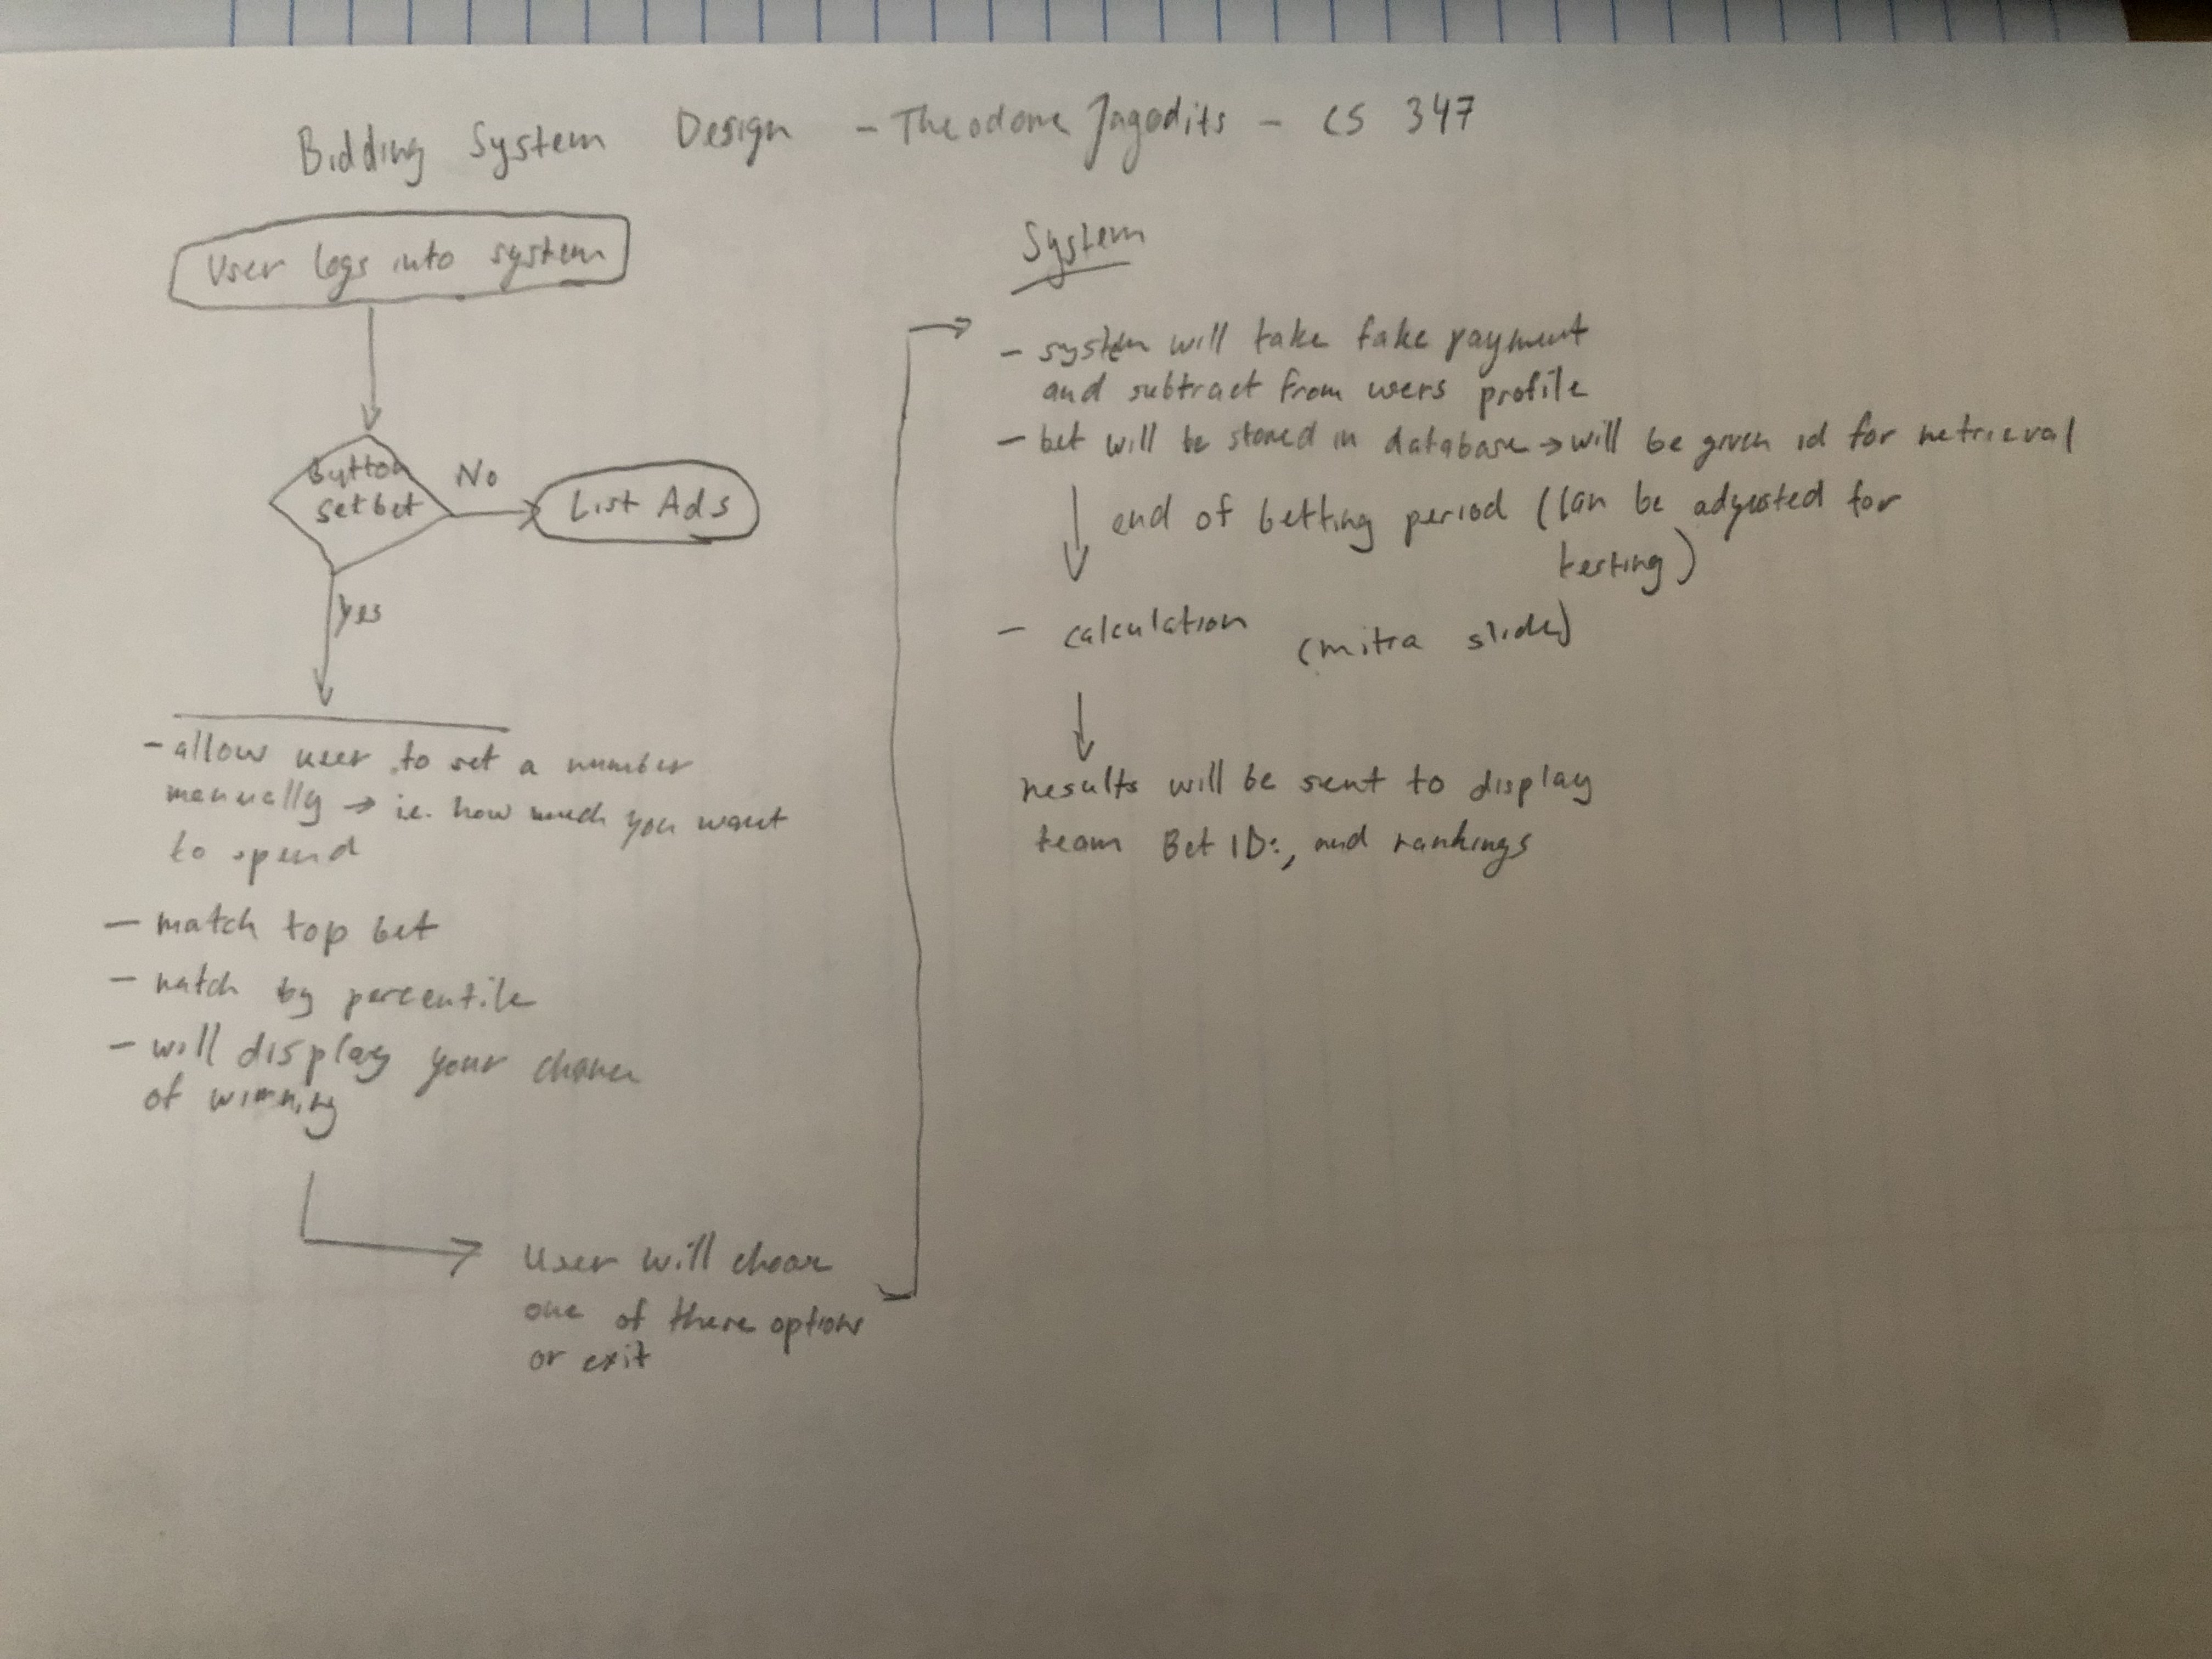 Bidding System Design - Theodore Jagodits - CS 347
User logs into system
Button
set bet
No
List Ads
Yes
- allow user to set a number
manually → ie. how much you want
to spend
- match top bet
- match by percentile
- will display your chance
of winning
User will choose
one of these options
or exit
System
- system will take fake payment
and subtract from users profile
- bet will be stored in database → will be given id for retrieval
end of betting period (can be adjusted for
testing)
- calculation (mitra slides)
results will be sent to display
team Bet ID:, and rankings